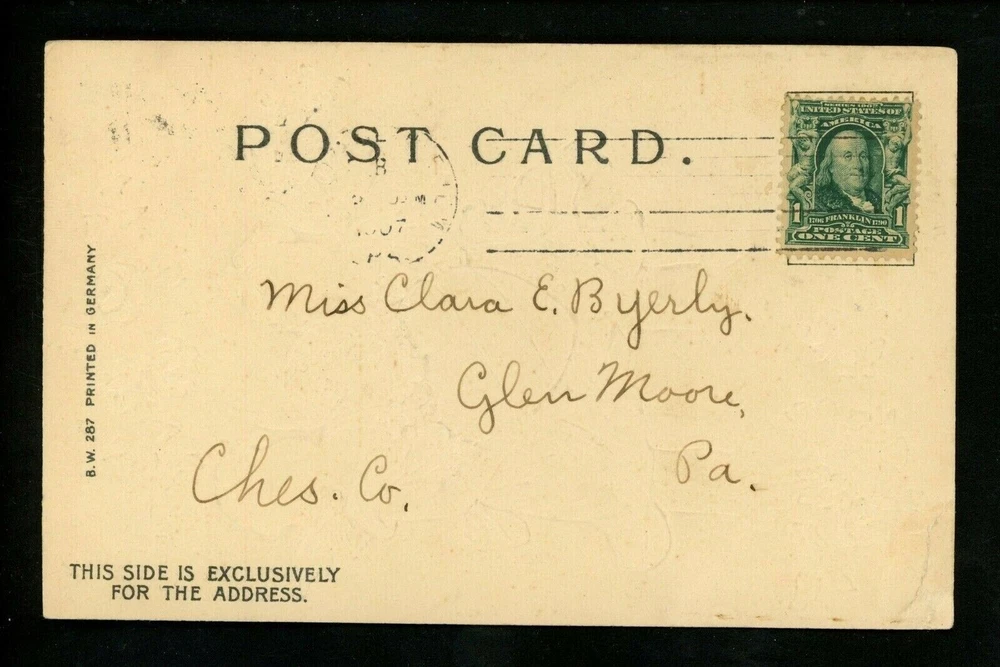 POST CARD.
1907
SERIES 1902
UNITED STATES OF
AMERICA
1 1
1706 FRANKLIN 1790
POSTAGE
ONE CENT
Miss Clara E. Byerly.
Glen Moore,
Pa.
Ches. Co.
B.W. 287 PRINTED IN GERMANY
THIS SIDE IS EXCLUSIVELY
FOR THE ADDRESS.